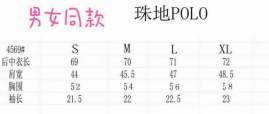 男女同款
珠地POLO
4569# S M L XL
后中衣长 69 70 71 72
肩宽 44 45.5 47 48.5
胸围 52 54 56 58
袖长 21.5 22 22.5 23